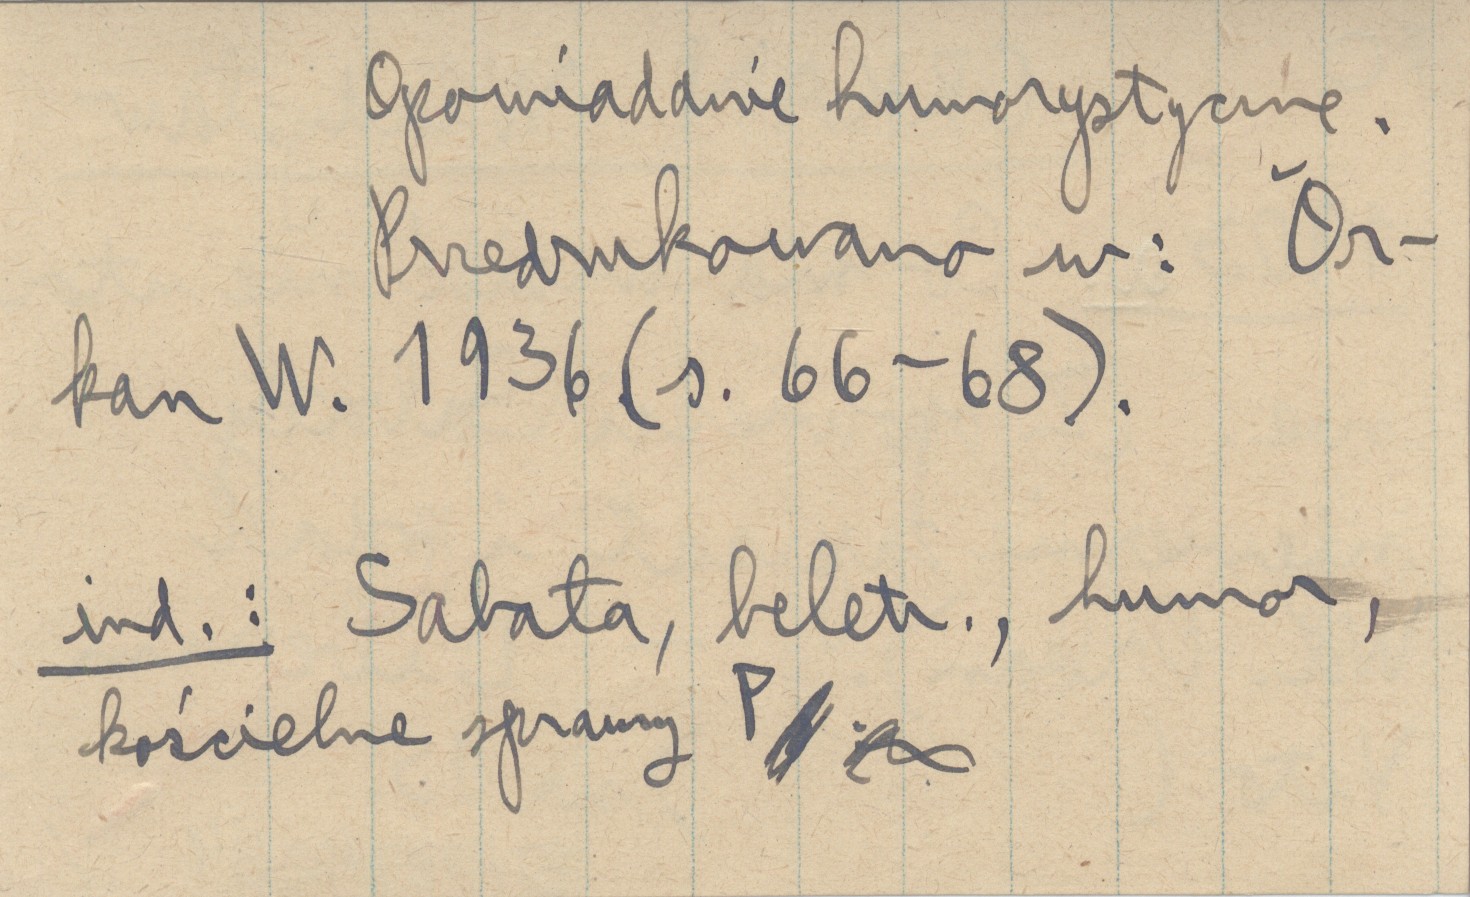 Opowiadanie humorystyczne.
Przedrukowano w: Or-
kan W. 1936 (s. 66-68).
ind.: Sabała, beletr., humor,
kościelne sprawy P